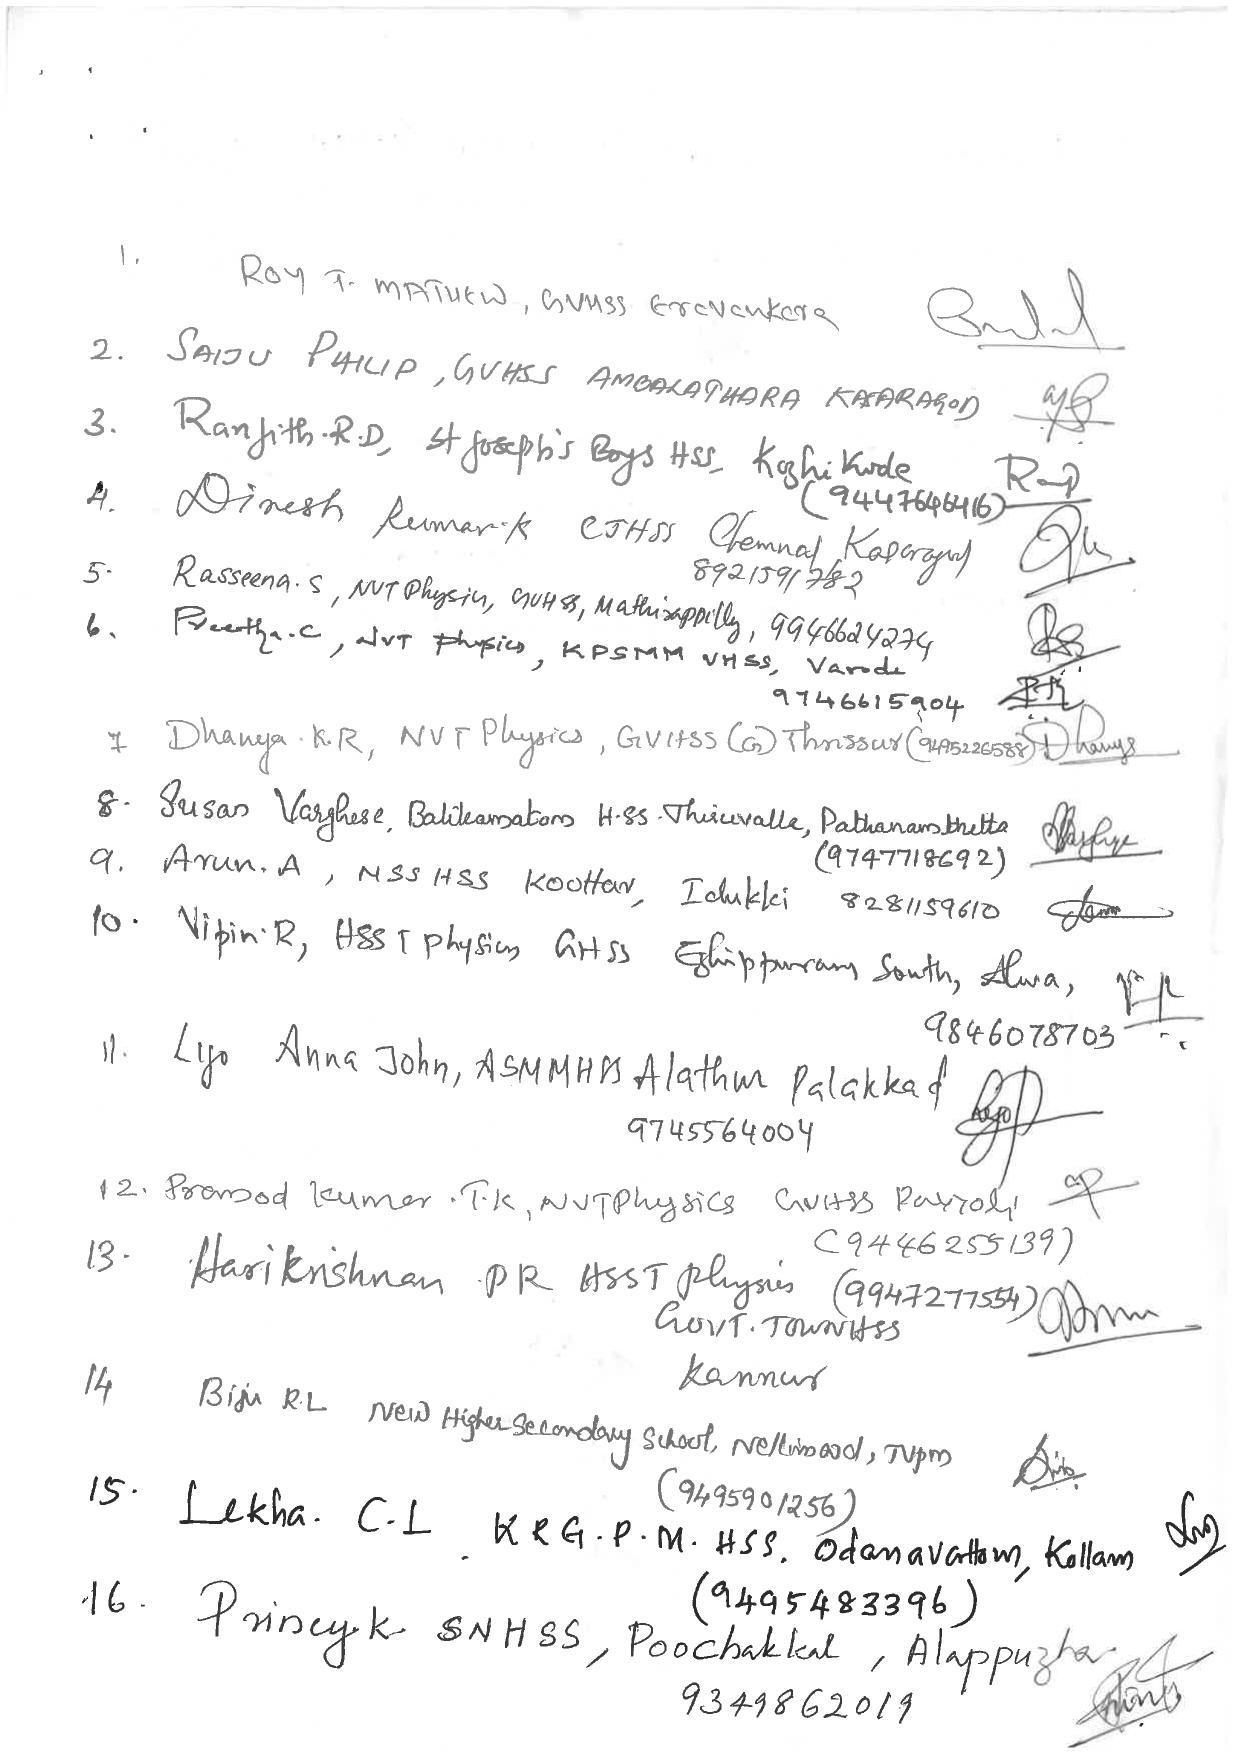 1. ROY T. MATHEW, GVHSS Eravankara
2. SAIJU PHILIP, GVHSS AMBALATHARA KASARAGOD
3. Ranjith.R.D, St Joseph's Boys HSS, Kozhikode
(9447646416)
4. Dinesh Kumar.K CJHSS Chemnad Kasaragod
8921591782
5. Rasseena.S, NVT Physics, GVHSS, Mathirappilly, 9946624274
6. Preetha.C, NVT Physics, KPSMM VHSS, Varode
9746615904
7 Dhanya.K.R, NVT Physics, GVHSS (G) Thrissur (9495226588) Dhanya
8. Susan Varghese, Balikamatom H.SS. Thiruvalla, Pathanamthitta
(9747718692)
9. Arun.A, NSS HSS Koottar, Idukki 8281159610
10. Vipin.R, HSST Physics GHSS Ezhippuram South, Alwa,
9846078703
11. Liyo Anna John, ASMMHSS Alathur Palakkad
9745564004
12. Pramod Kumar.T.K, NVT Physics GVHSS Payyoli
(9446255139)
13. Harikrishnan PR HSST Physics (9947277554)
GOVT. TOWN HSS
Kannur
14 Biju R.L New Higher Secondary School, Nellimood, TVpm
(9495901256)
15. Lekha. C.L K R G.P.M. HSS, Odanavattom, Kollam
(9495483396)
16. Princy.K SNHSS, Poochakkal, Alappuzha
9349862019